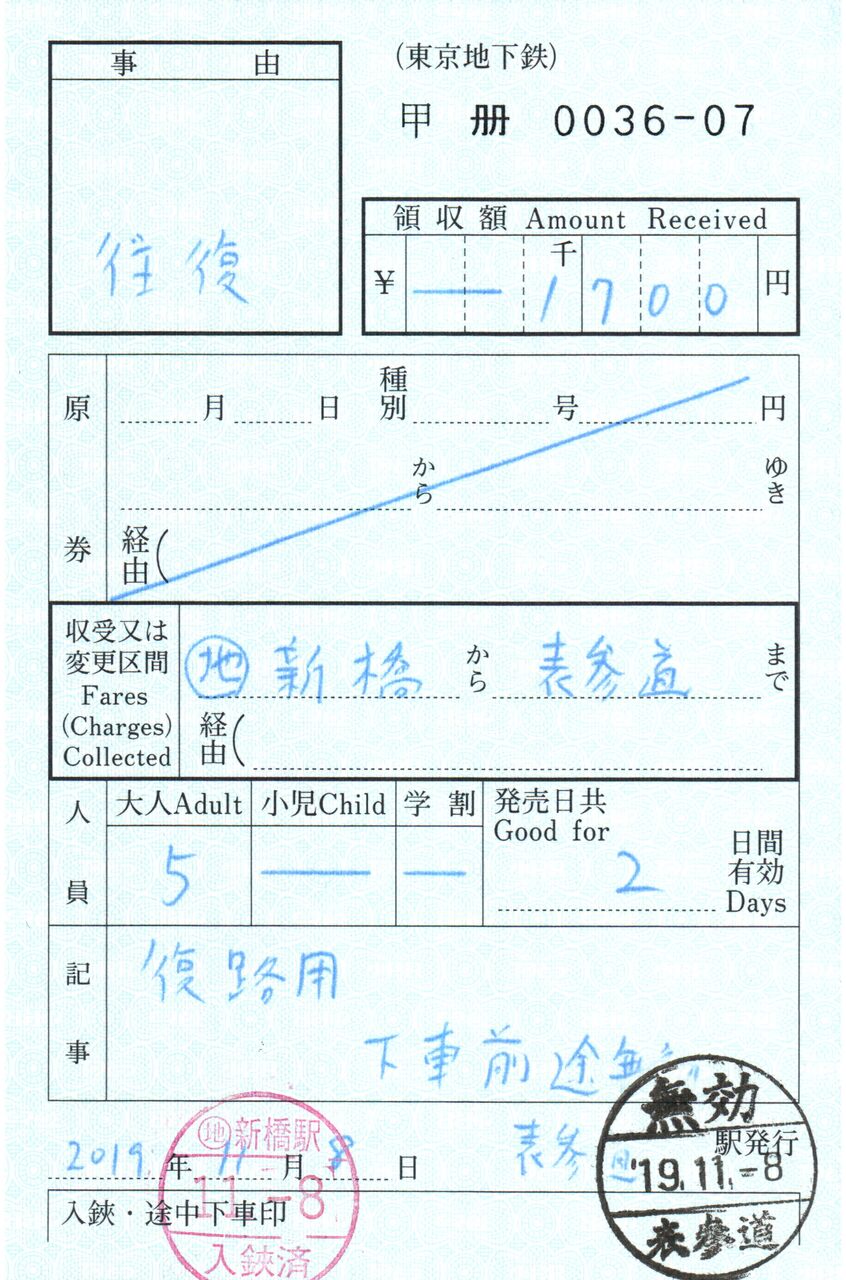 事 由
往復
(東京地下鉄)
甲 册 0036-07
領収額 Amount Received
千
¥ ― 1700 円
原券
月 日 種別 号 円
から ゆき
経由(
収受又は
変更区間
Fares
(Charges)
Collected
㊞地 新橋 から 表参道 まで
経由(
人員
大人Adult 小児Child 学割
5 ― ―
発売日共
Good for
2
日間
有効
Days
記事
復路用
下車前途無
2019年 11月 8日
表参道 駅発行
入鋏・途中下車印
地 新橋駅
11.-8
入鋏済
無効
'19.11.-8
表参道